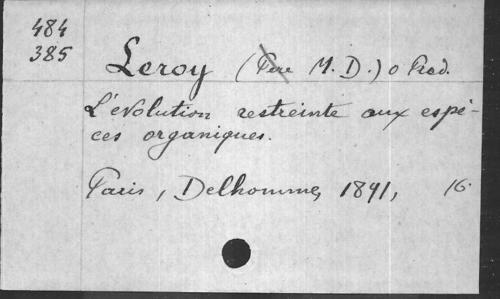 484
385
Leroy (Père M. D.) O Praed.
L'évolution restreinte aux espè-
ces organiques.
Paris, Delhomme, 1891, 16.